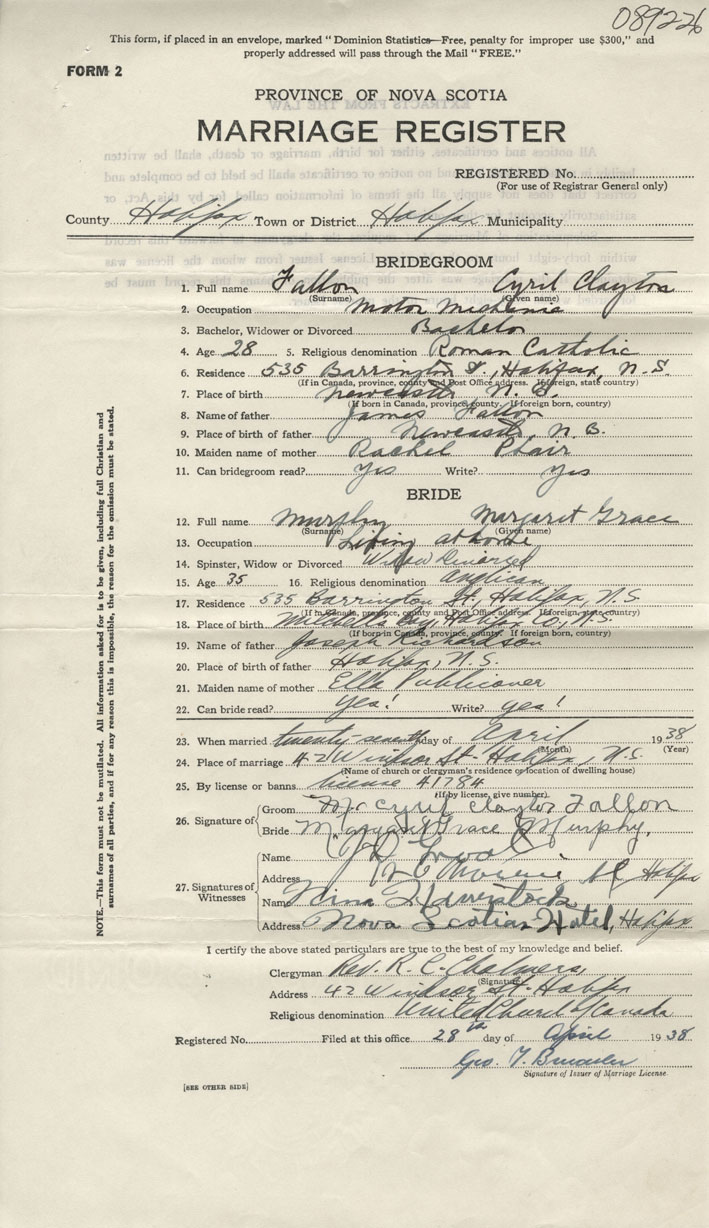 089226
This form, if placed in an envelope, marked "Dominion Statistics—Free, penalty for improper use $300," and
properly addressed will pass through the Mail "FREE."
FORM 2
PROVINCE OF NOVA SCOTIA
MARRIAGE REGISTER
REGISTERED No.
(For use of Registrar General only)
County Halifax Town or District Halifax Municipality
BRIDEGROOM
1. Full name Fallon Cyril Clayton
(Surname) (Given name)
2. Occupation Motor Mechanic
3. Bachelor, Widower or Divorced Bachelor
4. Age 28 5. Religious denomination Roman Catholic
6. Residence 535 Barrington St., Halifax, N.S.
(If in Canada, province, county and Post Office address. If foreign, state country)
7. Place of birth Newcastle N.B.
(If born in Canada, province, county. If foreign born, country)
8. Name of father James Fallon
9. Place of birth of father Newcastle, N.B.
10. Maiden name of mother Rachel Phair
11. Can bridegroom read? Yes Write? Yes
BRIDE
12. Full name Murphy Margaret Grace
(Surname) (Given name)
13. Occupation Living at home
14. Spinster, Widow or Divorced Widow Divorced
15. Age 35 16. Religious denomination Anglican
17. Residence 535 Barrington St., Halifax, N.S.
(If in Canada, province, county and Post Office address. If foreign, state country)
18. Place of birth Mitchells Bay, Halifax Co., N.S.
(If born in Canada, province, county. If foreign born, country)
19. Name of father Joseph Richardson
20. Place of birth of father Halifax, N.S.
21. Maiden name of mother Ella Publicover
22. Can bride read? Yes! Write? yes!
23. When married twenty-seventh day of April 1938
(Month) (Year)
24. Place of marriage 42 Windsor St- Halifax, N.S.
(Name of church or clergyman's residence or location of dwelling house)
25. By license or banns license 41784
(If by license, give number)
26. Signature of Groom Mr Cyril Clayton Fallon
Bride Margaret Grace Murphy,
27. Signatures of Witnesses
Name
Address St Halifax
Name Nina
Address Nova Scotian Hotel, Halifax
I certify the above stated particulars are true to the best of my knowledge and belief.
Clergyman Rev. R. C. Chalmers,
(Signature)
Address 42 Windsor St- Halifax
Religious denomination United Church of Canada
Registered No. Filed at this office 28th day of April 1938
Geo. T.
Signature of Issuer of Marriage License
[SEE OTHER SIDE]
NOTE.—This form must not be mutilated. All information asked for is to be given, including full Christian and
surnames of all parties, and if for any reason this is impossible, the reason for the omission must be stated.